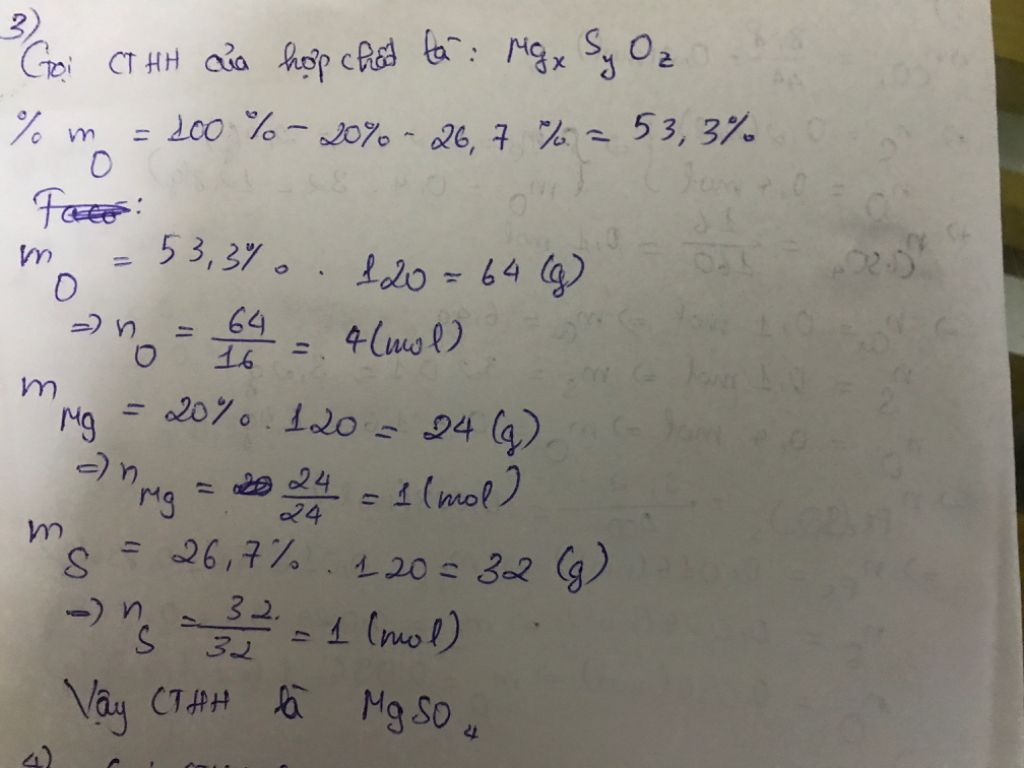 3)
Gọi CTHH của hợp chất là: MgxSyOz
% mO = 100% - 20% - 26,7% = 53,3%
mO = 53,3% . 120 = 64 (g)
=> nO = 64/16 = 4 (mol)
mMg = 20% . 120 = 24 (g)
=> nMg = 24/24 = 1 (mol)
mS = 26,7% . 120 = 32 (g)
=> nS = 32/32 = 1 (mol)
Vậy CTHH là MgSO4
4)